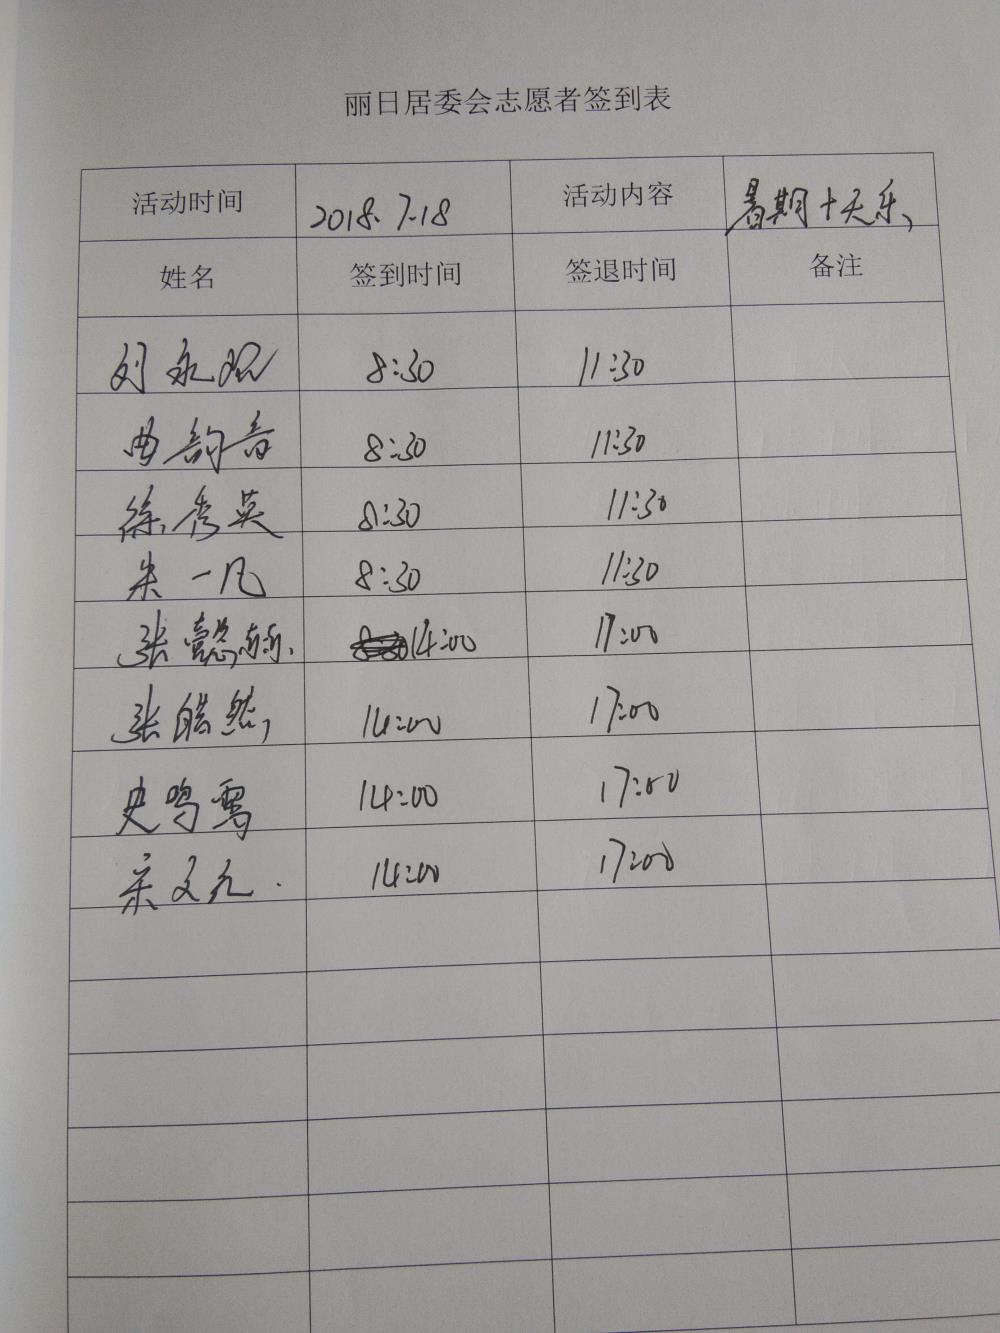 丽日居委会志愿者签到表
活动时间 2018.7.18 活动内容 暑期十天乐
姓名 签到时间 签退时间 备注
刘永观 8:30 11:30
曲韵音 8:30 11:30
徐秀英 8:30 11:30
朱一凡 8:30 11:30
张懿 14:00 17:00
张皓然 14:00 17:00
史鸣雪 14:00 17:00
宋文元 14:00 17:00